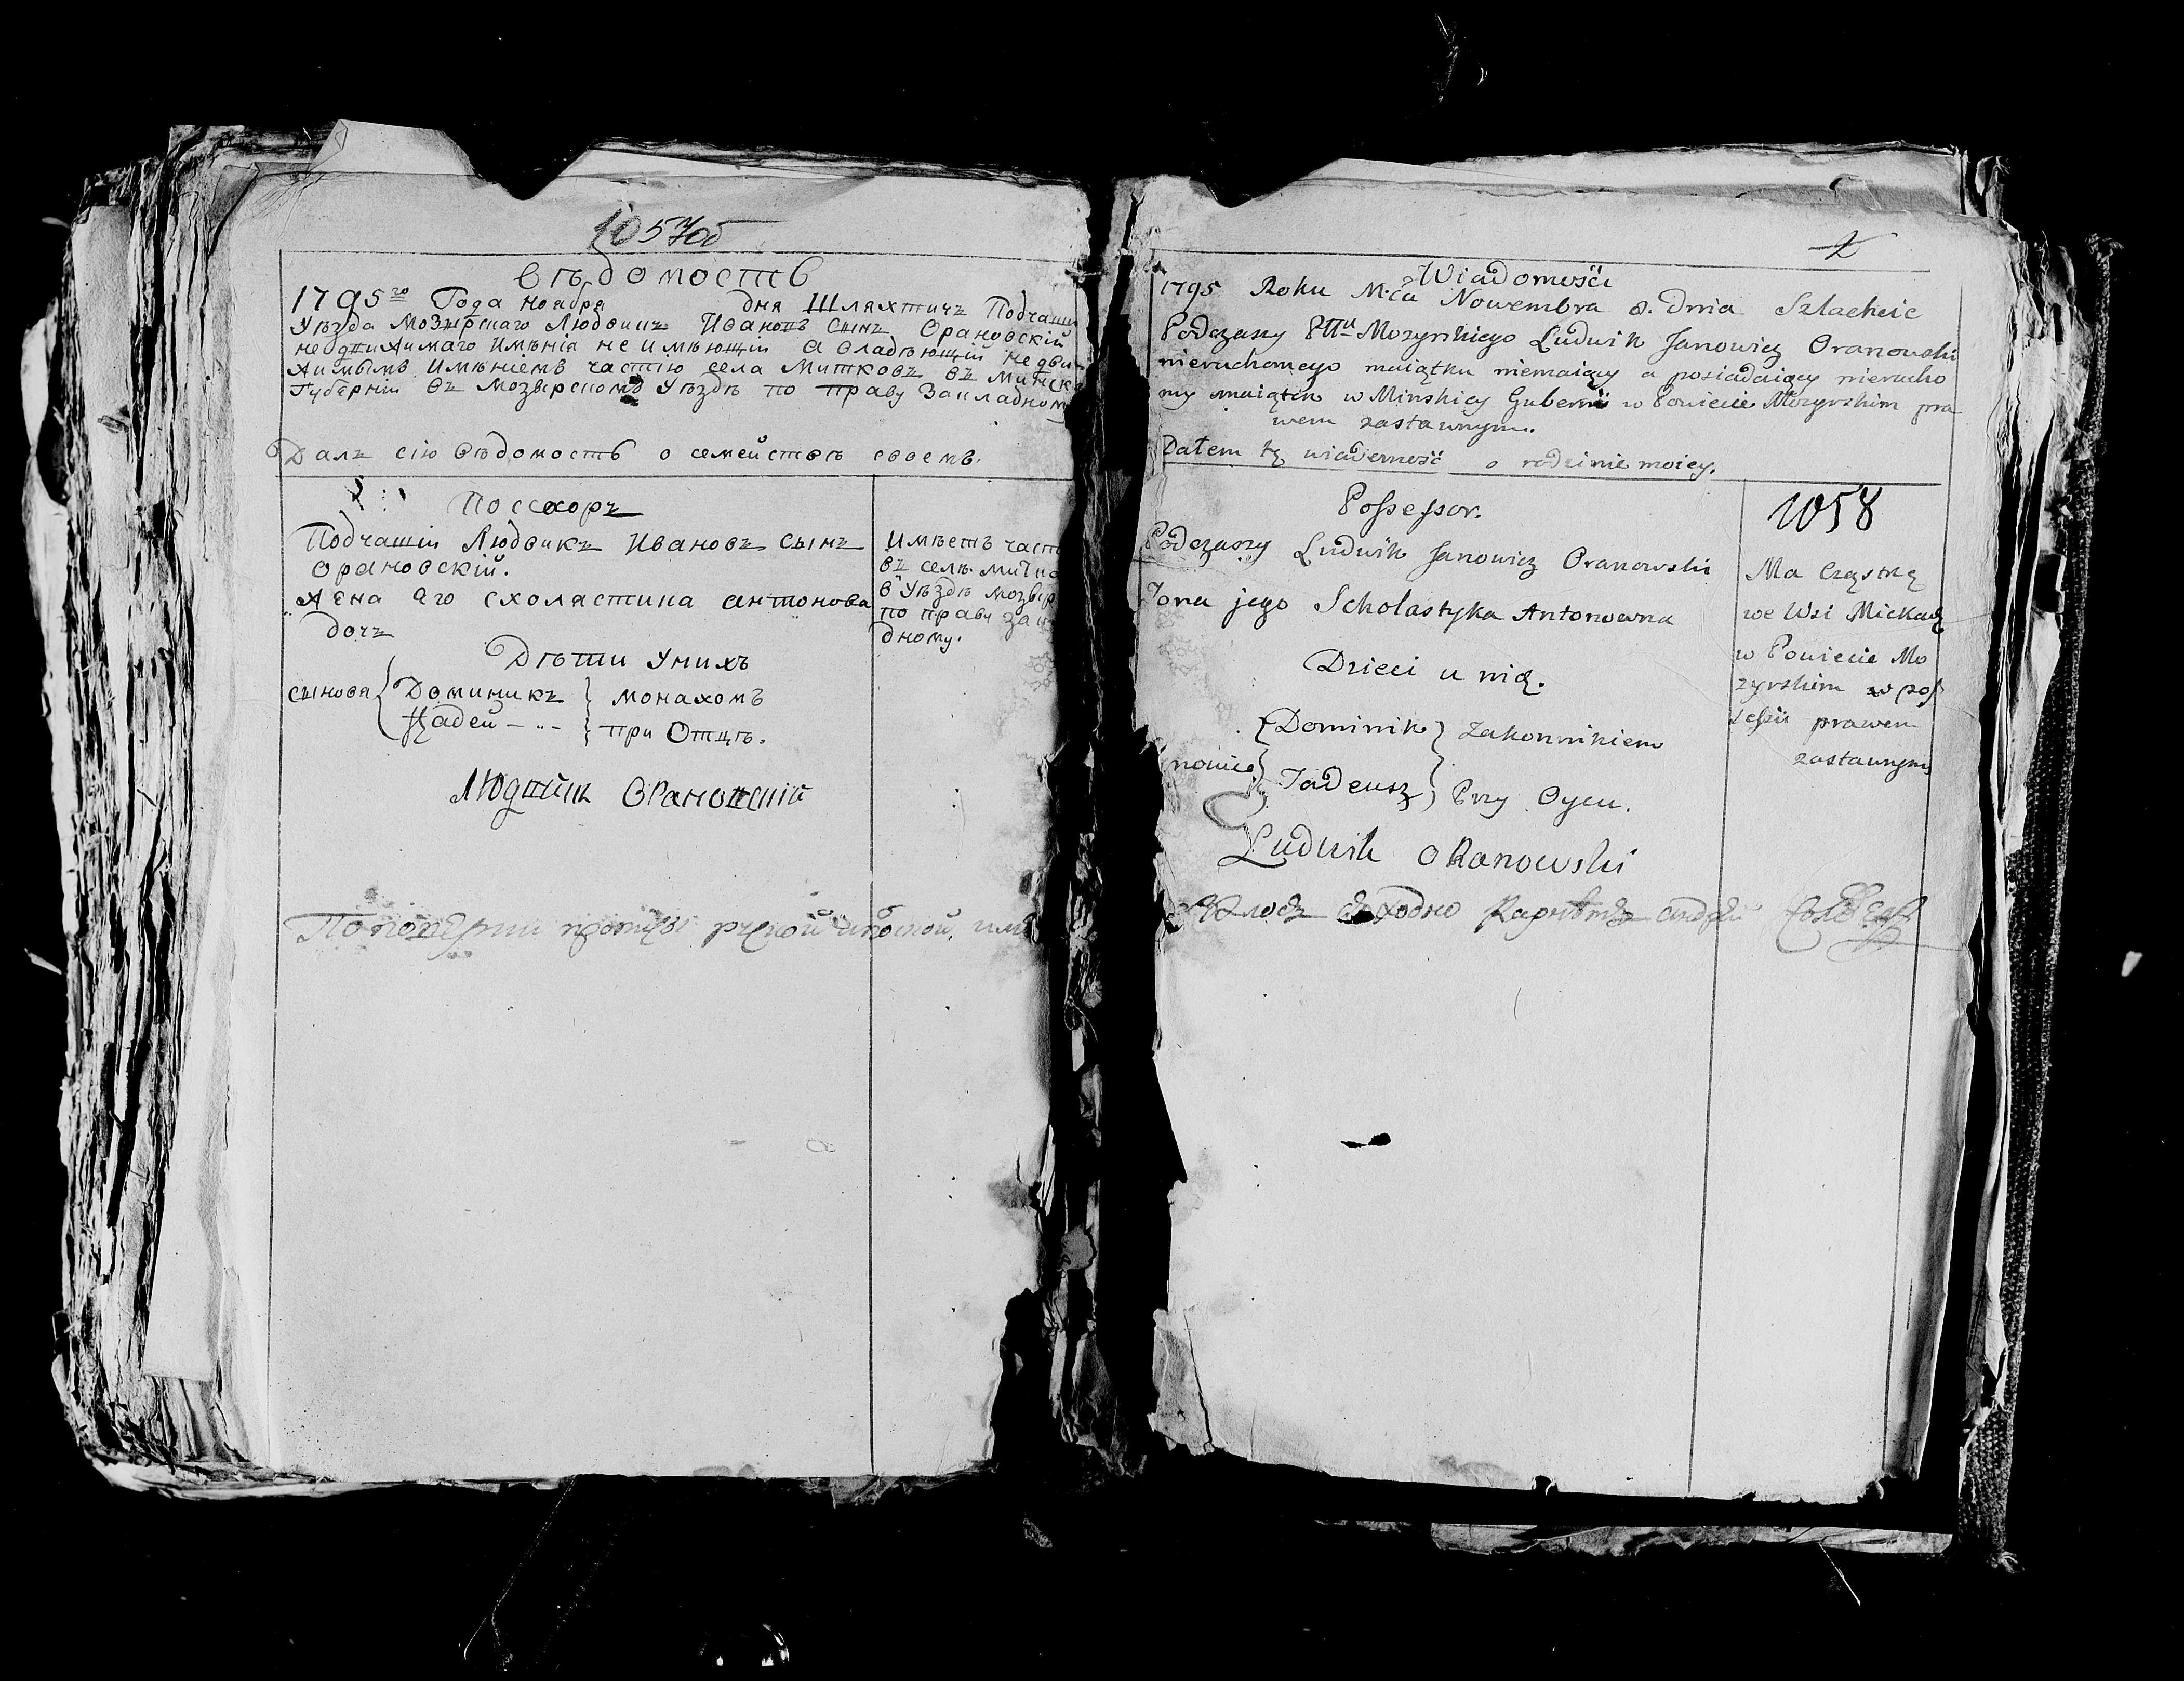 1057об
Вѣдомость
1795го Года ноября дня Шляхтичъ Подчаши
Уѣзда Мозырскаго Людвикъ Ивановъ Сынъ Орановскій
недвижимаго имѣнія не имѣющій а владѣющій недви
жимымъ имѣніемъ частію села Митковъ въ Минско
Губерніи въ Мозырскомъ Уѣздѣ по праву Закладному
Далъ сію вѣдомость о семействѣ своемъ.
Поссесоръ
Подчашій Людвикъ Ивановъ Сынъ
Орановскій.
Жена его Схоластика Антонова
дочь
Дѣти у нихъ
сынова { Доминикъ } монахомъ
Фадей - .. - } при Отцѣ.
Имѣетъ част
въ селѣ
в Уѣздѣ Мозыр
по праву за
дному.
Людвикъ Орановскій
По
2
Wiadomość
1795 Roku M-ca Nowembra 8. Dnia Szlachcic
Podczaszy PTtu Mozyrskiego Ludwik Janowicz Oranowski
nieruchomego maiątku niemaiący a posiadaiący nierucho
my maiątek w Minskiey Gubernii w Powiecie Mozyrskim pra
wem zastawnym.
Dałem tę wiadomość o rodzinie moiey.
Possessor.
Podczaszy Ludwik Janowicz Oranowski
Żona jego Scholastyka Antonowna
Dzieci u nich.
{ Dominik } Zakonnikiem
nowie } Tadeusz } Przy Oycu.
Ludwik Oranowski
1058
Ma Cząstkę
we Wsi Mickach
w Powiecie Mo
zyrskim w pos
sessii prawem
zastawnym